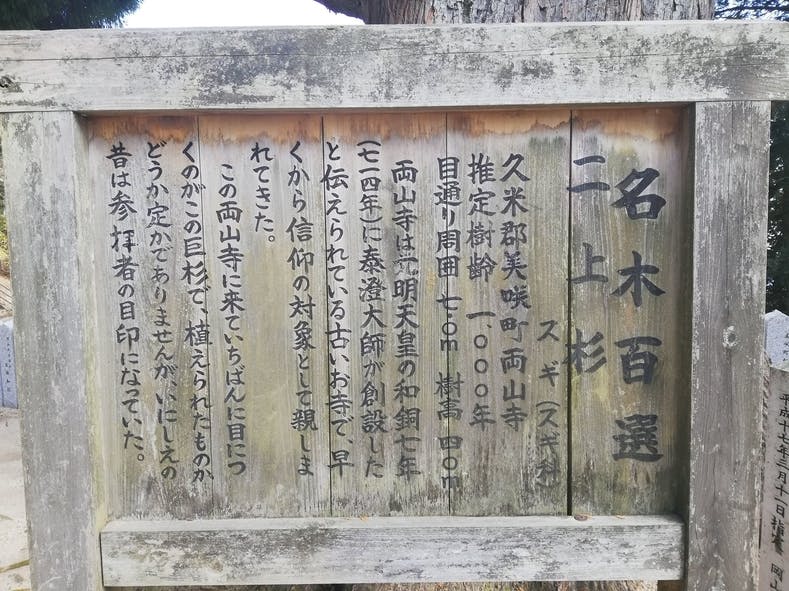 名木百選
二上杉
スギ(スギ科
久米郡美咲町両山寺
推定樹齢 一、〇〇〇年
目通り周囲 七.〇m 樹高 四〇m
両山寺は元明天皇の和銅七年
(七一四年)に泰澄大師が創設した
と伝えられている古いお寺で、早
くから信仰の対象として親しま
れてきた。
この両山寺に来ていちばんに目につ
くのがこの巨杉で、植えられたものか、
どうか定かでありませんが、いにしえの
昔は参拝者の目印になっていた。
平成十七年三月十一日指定 岡山